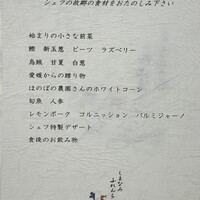 シェフの故郷の食材をおたのしみ下さい
始まりの小さな前菜
鰹 新玉葱 ビーツ ラズベリー
烏賊 甘夏 白葱
愛媛からの贈り物
ほのぼの農園さんのホワイトコーン
旬魚 人参
レモンポーク コルニッション パルミジャーノ
シェフ特製デザート
食後のお飲み物
しまなみ
ふれんち